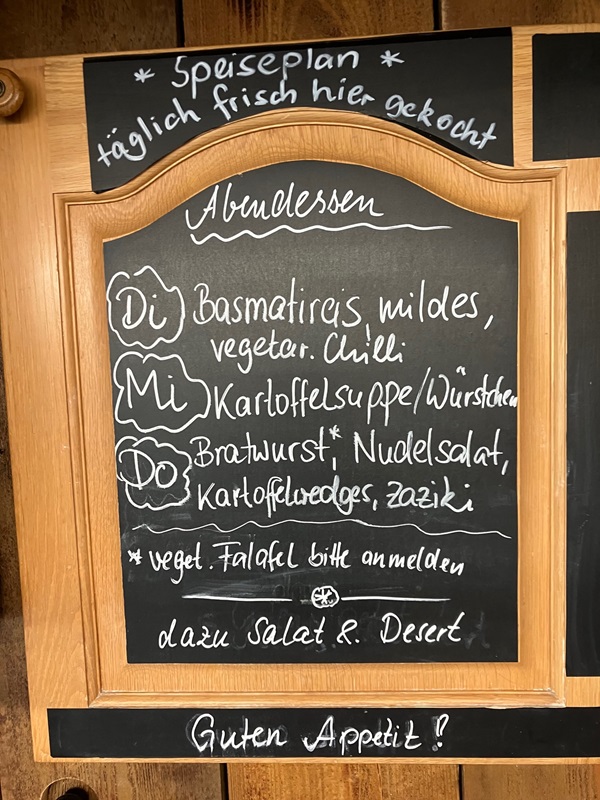 * Speiseplan *
täglich frisch hier gekocht
Abendessen
Di Basmatireis, mildes,
vegetar. Chilli
Mi Kartoffelsuppe/Würstchen
Do Bratwurst*, Nudelsalat,
Kartoffelwedges, Zaziki
* veget. Falafel bitte anmelden
dazu Salat & Desert
Guten Appetit!